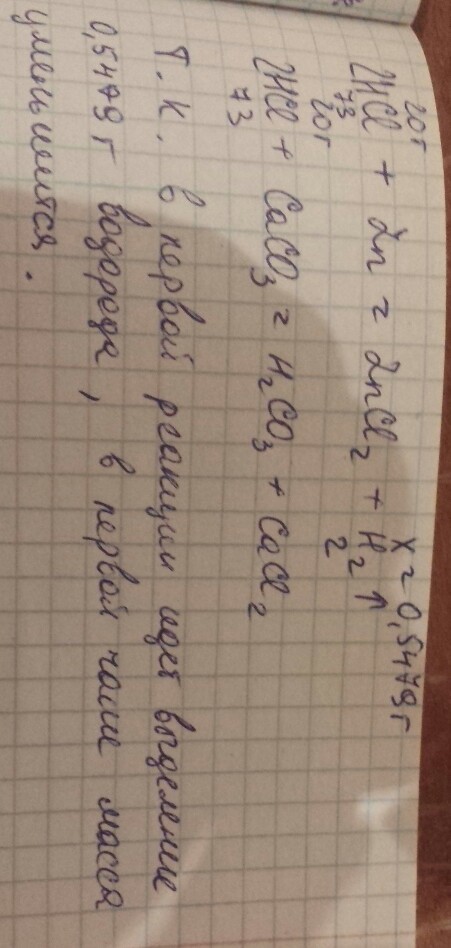 20г x = 0,5479 г
2HCl + Zn = ZnCl₂ + H₂↑
73 2
20г
2HCl + CaCO₃ = H₂CO₃ + CaCl₂
73
Т.к. в первой реакции идет выделение
0,5479 г водорода, в первой чаше масса
уменьшится.